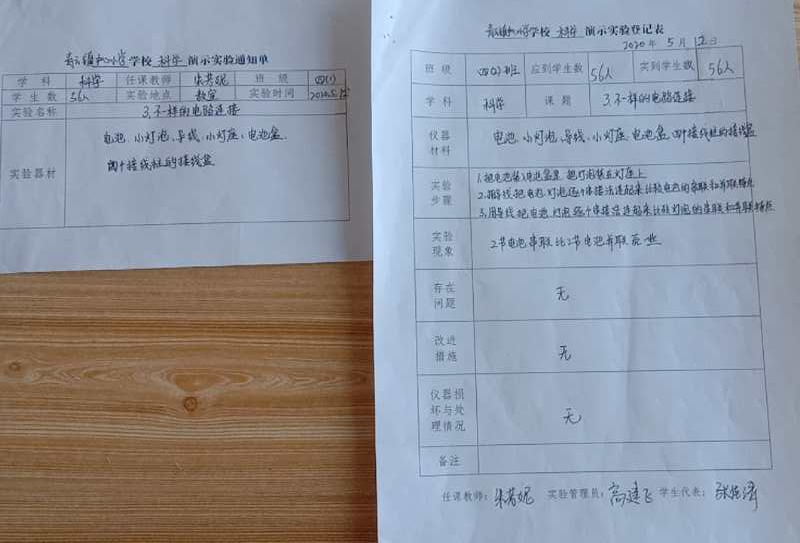 学校 科学 演示实验通知单
学科 科学 任课教师 朱芸妮 班级 四(1)
学生数 56人 实验地点 教室 实验时间 2020.5.12
实验名称 3.不一样的电路连接
实验器材 电池、小灯泡、导线、小灯座、电池盒、
四个接线柱的接线盒
学校 科学 演示实验登记表
2020年5月12日
班级 四(1)班 应到学生数 56人 实到学生数 56人
学科 科学 课题 3.不一样的电路连接
仪器材料 电池、小灯泡、导线、小灯座、电池盒、四个接线柱的接线盒
实验步骤 1.把电池装入电池盒里 把灯泡装在灯座上
2.用导线把电池、灯泡逐个串接法连起来比较电池的串联和并联特点
3.用导线把电池、灯泡逐个串接法连起来比较灯泡的串联和并联特点
实验现象 2节电池串联比2节电池并联亮一些
存在问题 无
改进措施 无
仪器损坏与处理情况 无
备注
任课教师: 朱芸妮 实验管理员: 高建飞 学生代表: 张